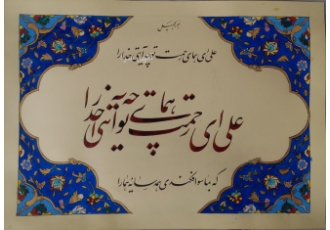 علی ای همای رحمت تو چه آیتی خدا را
علی ای همای رحمت تو چه آیتی خدا را
که به ماسوا فکندی همه سایهٔ هما را